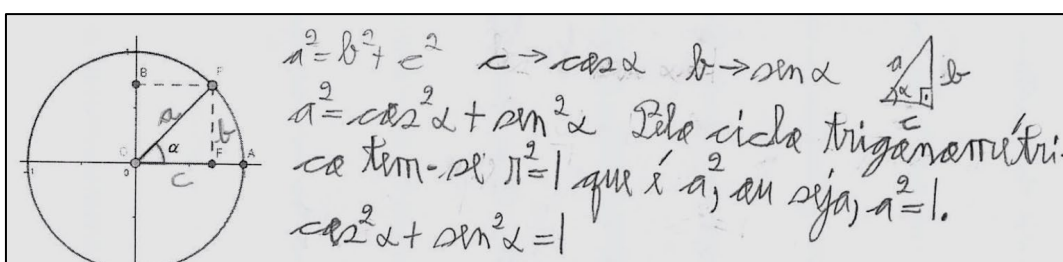 1
B
P
a
b
α
O
F
A
-1
0
c
a² = b² + c² c → cos α b → sen α
a
b
α
c
a² = cos² α + sen² α Pelo ciclo trigonométri-
co tem-se r² = 1 que é a², ou seja, a² = 1.
cos² α + sen² α = 1